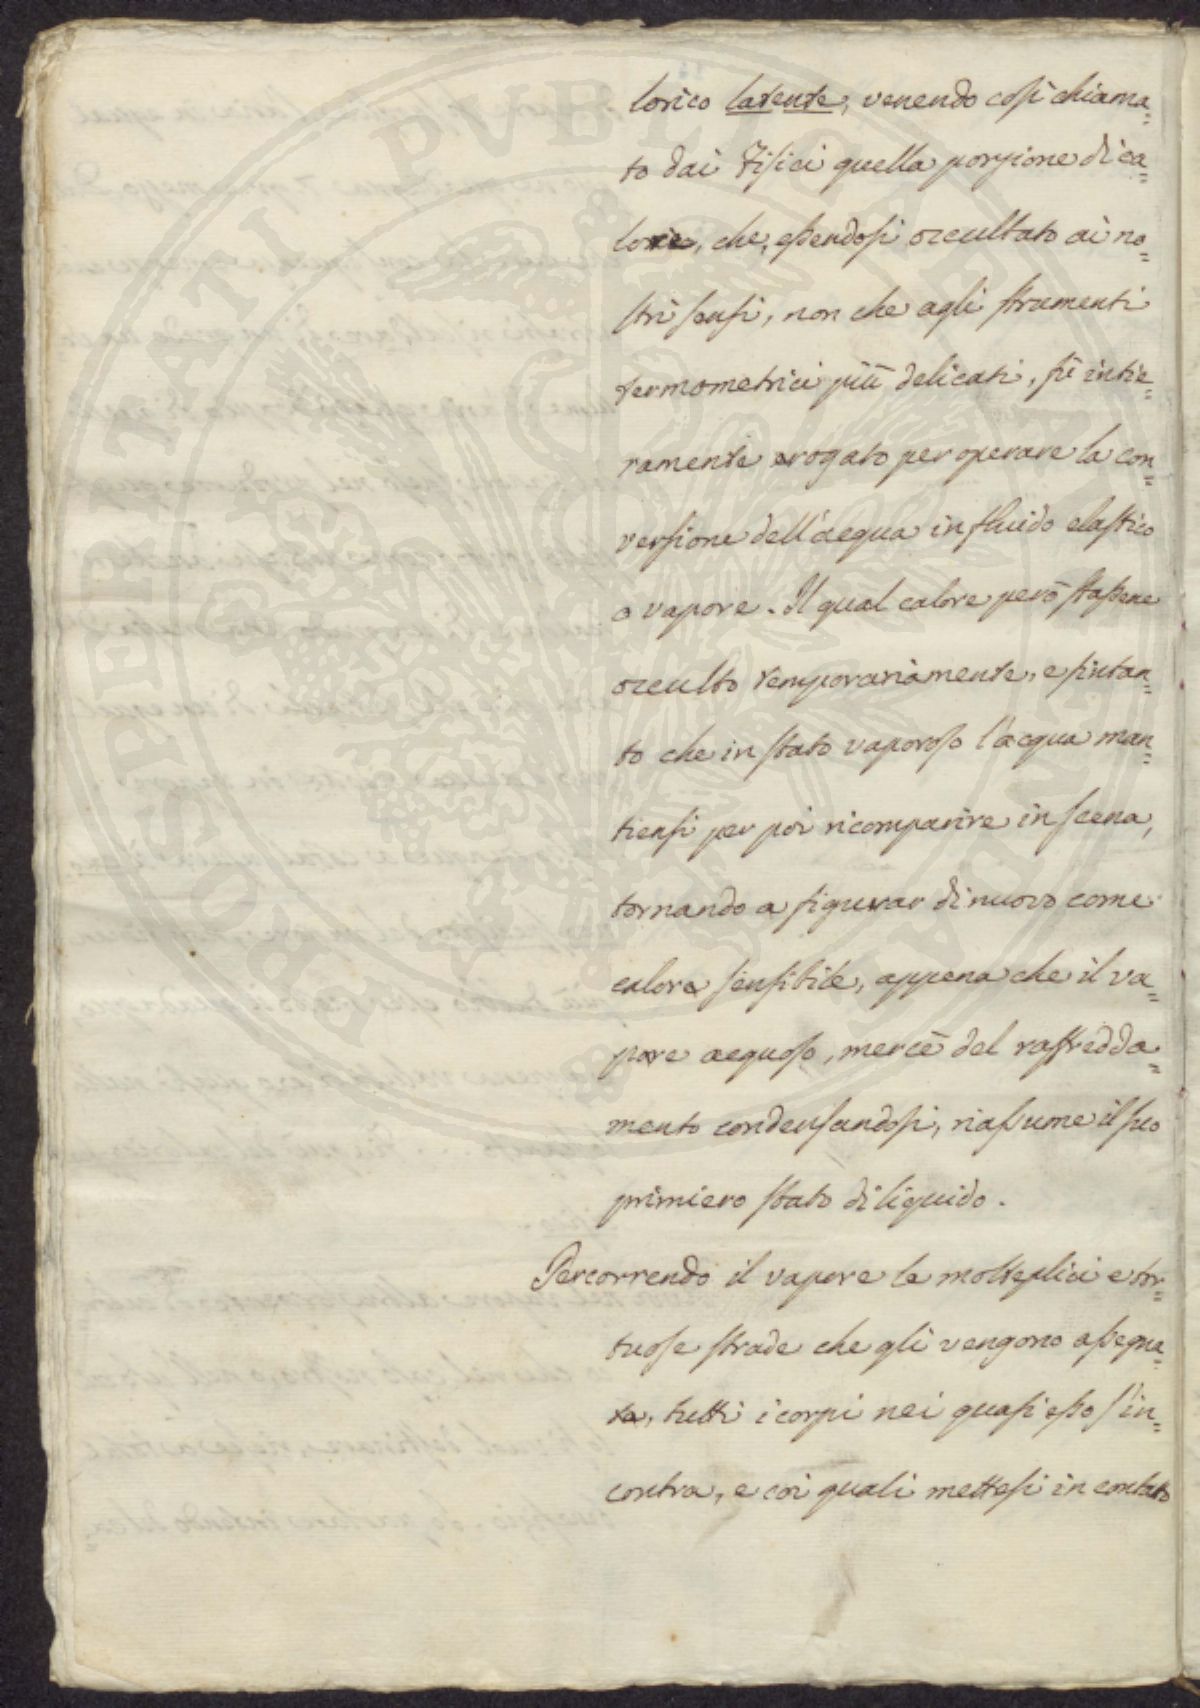 lorico latente, venendo così chiama=
to dai Fisici quella porzione di ca=
lorie, che, essendosi occultato ai no=
stri sensi, non che agli strumenti
termometrici più delicati, fù intie=
ramente erogato per operare la con=
versione dell'acqua in fluido elastico
o vapore. Il qual calore però stassene
occulto temporariamente, e sintan=
to che in stato vaporoso l'acqua man=
tiensi per poi ricomparire in scena,
tornando a figurar di nuovo come
calore sensibile, appena che il va=
pore acquoso, mercè del raffredda=
mento condensandosi, riassume il suo
primiero stato di liquido.
Percorrendo il vapore le molteplici e tor=
tuose strade che gli vengono assegna=
te, tutti i corpi nei quasi esso s'in=
contra, e coi quali mettesi in contatto
POSPERITATI PVBLICAE AVGENDAE